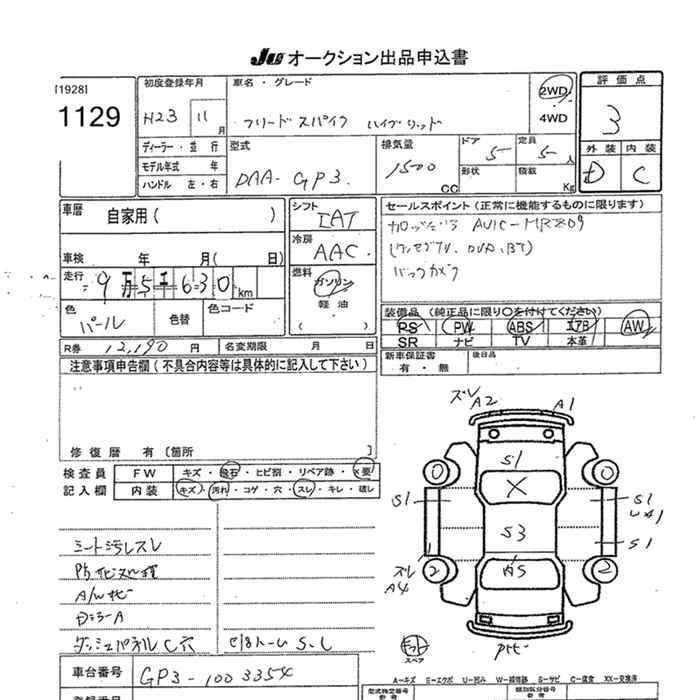 JU オークション出品申込書
[1928]
1129
初度登録年月
H23 11 月
車名・グレード
フリードスパイク ハイブリッド
2WD
4WD
評価点
3
外装 内装
D C
ディーラー・並行
モデル年式 年
ハンドル 左・右
型式
DAA-GP3
排気量
1500 CC
ドア
5
定員
5 人
形状
積載
Kg
車歴 自家用( )
車検 年 月( 日)
走行
9万5千630 km
色
パール
色替
色コード
シフト
IAT
冷房
AAC
燃料
ガソリン
軽油
( )
セールスポイント(正常に機能するものに限ります)
AVIC-MRZ09
(ワンセグTV, DVD, BT)
バックカメラ
装備品(純正品に限り〇を付けてください)
PS PW ABS エアB AW
SR ナビ TV 本革
新車保証書
有・無
後日品
R券 12,190 円
名変期限 月 日
注意事項申告欄(不具合内容等は具体的に記入して下さい)
修復歴 有 [箇所 ]
検査員
記入欄
FW キズ・飛石・ヒビ割・リペア跡・X要
内装 キズ・汚れ・コゲ・穴・スレ・キレ・破レ
シート汚レスレ
A/Wサビ
ダッシュパネルC穴
S.L
ズレ
A2
A1
S1
X
S1
S1
S3
S1
ズレ
A4
AS
0
0
2
2
スペア
車台番号
GP3-1003354
A-キズ E-エクボ U-凹み W-補修跡 S-サビ C-腐食 XX-交換済
型式指定番号
類別区分番号
参考
参考
登録番号